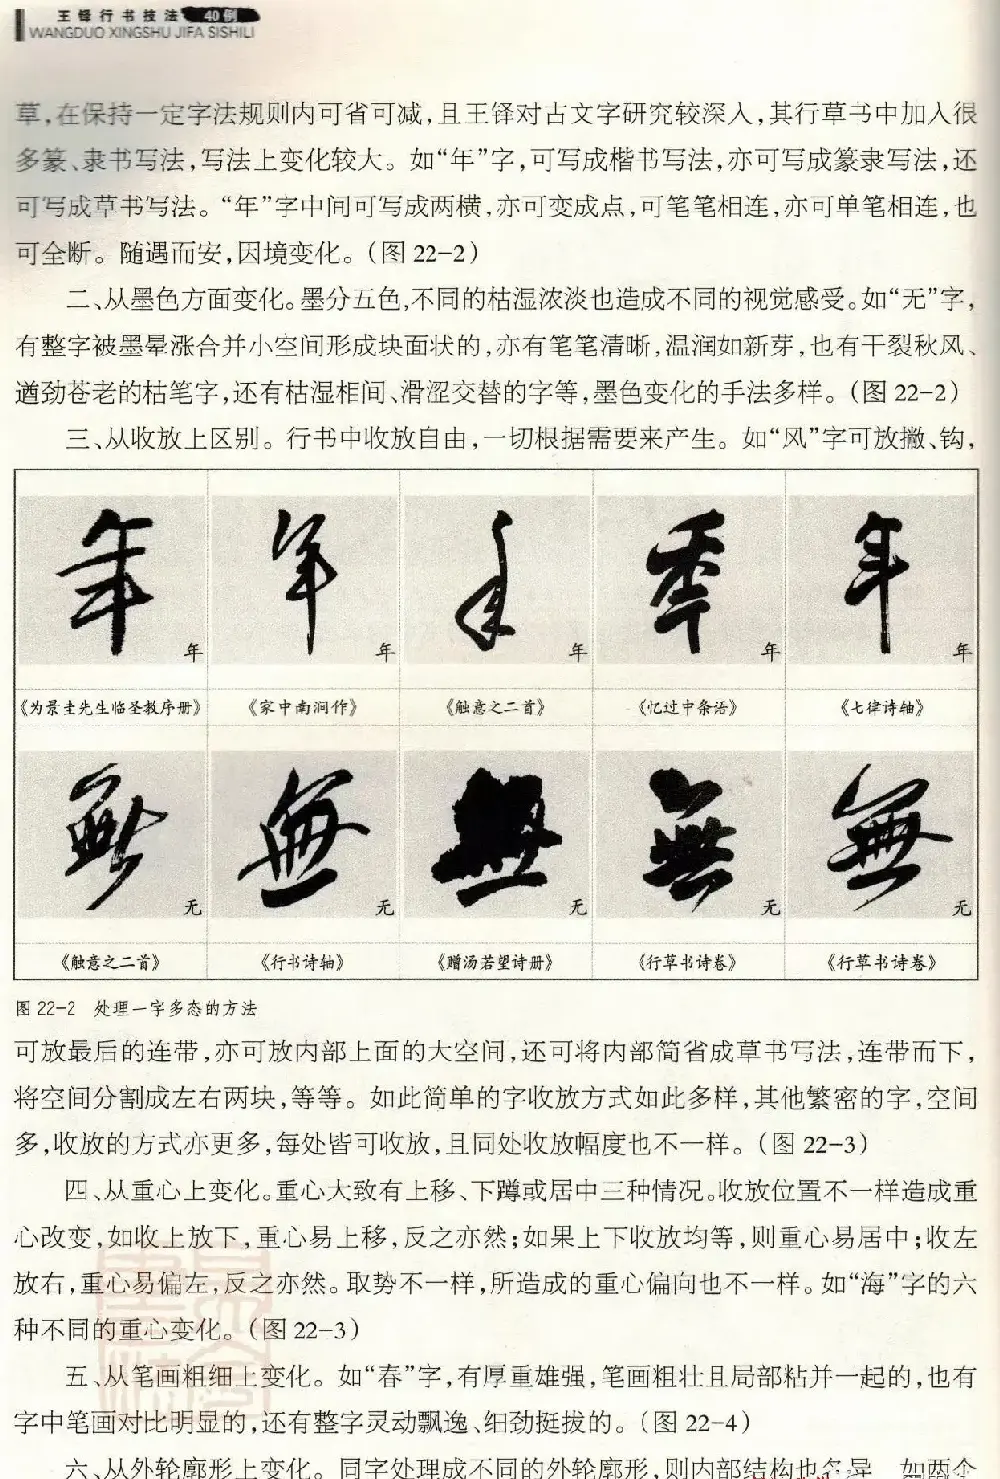 王铎行书技法 40例
WANGDUO XINGSHU JIFA SISHILI
草,在保持一定字法规则内可省可减,且王铎对古文字研究较深入,其行草书中加入很
多篆、隶书写法,写法上变化较大。如“年”字,可写成楷书写法,亦可写成篆隶写法,还
可写成草书写法。“年”字中间可写成两横,亦可变成点,可笔笔相连,亦可单笔相连,也
可全断。随遇而安,因境变化。(图22-2)
二、从墨色方面变化。墨分五色,不同的枯湿浓淡也造成不同的视觉感受。如“无”字,
有整字被墨晕涨合并小空间形成块面状的,亦有笔笔清晰,温润如新芽,也有干裂秋风、
遒劲苍老的枯笔字,还有枯湿相间、滑涩交替的字等,墨色变化的手法多样。(图22-2)
三、从收放上区别。行书中收放自由,一切根据需要来产生。如“风”字可放撇、钩,
年 年 年 年 年
年 年 年 年 年
《为景圭先生临圣教序册》 《家中南涧作》 《触意之二首》 《忆过中条语》 《七律诗轴》
無 無 無 無 無
无 无 无 无 无
《触意之二首》 《行书诗轴》 《赠汤若望诗册》 《行草书诗卷》 《行草书诗卷》
图22-2 处理一字多态的方法
可放最后的连带,亦可放内部上面的大空间,还可将内部简省成草书写法,连带而下,
将空间分割成左右两块,等等。如此简单的字收放方式如此多样,其他繁密的字,空间
多,收放的方式亦更多,每处皆可收放,且同处收放幅度也不一样。(图22-3)
四、从重心上变化。重心大致有上移、下蹲或居中三种情况。收放位置不一样造成重
心改变,如收上放下,重心易上移,反之亦然;如果上下收放均等,则重心易居中;收左
放右,重心易偏左,反之亦然。取势不一样,所造成的重心偏向也不一样。如“海”字的六
种不同的重心变化。(图22-3)
五、从笔画粗细上变化。如“春”字,有厚重雄强,笔画粗壮且局部粘并一起的,也有
字中笔画对比明显的,还有整字灵动飘逸、细劲挺拔的。(图22-4)
六、从外轮廓形上变化。同字处理成不同的外轮廓形,则内部结构也各异,如两个